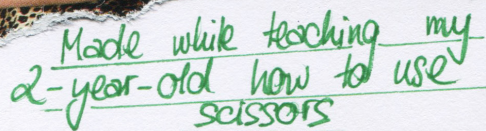 Made while teaching my
2-year-old how to use
scissors